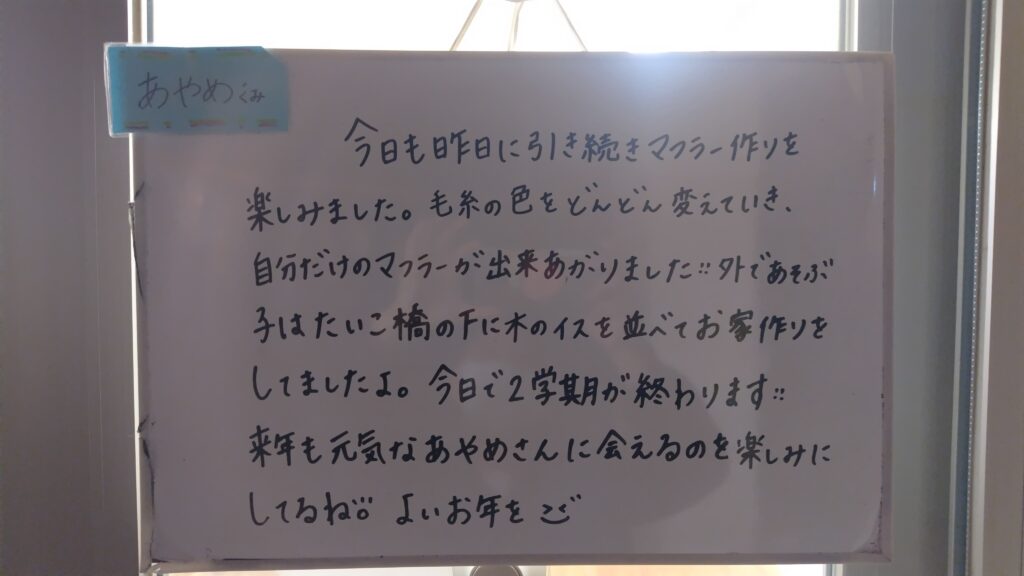 あやめぐみ
今日も昨日に引き続きマフラー作りを
楽しみました。毛糸の色をどんどん変えていき、
自分だけのマフラーが出来あがりました!! 外であそぶ
子はたいこ橋の下に木のイスを並べてお家作りを
してましたよ。今日で2学期が終わります!!
来年も元気なあやめさんに会えるのを楽しみに
してるね!! よいお年を